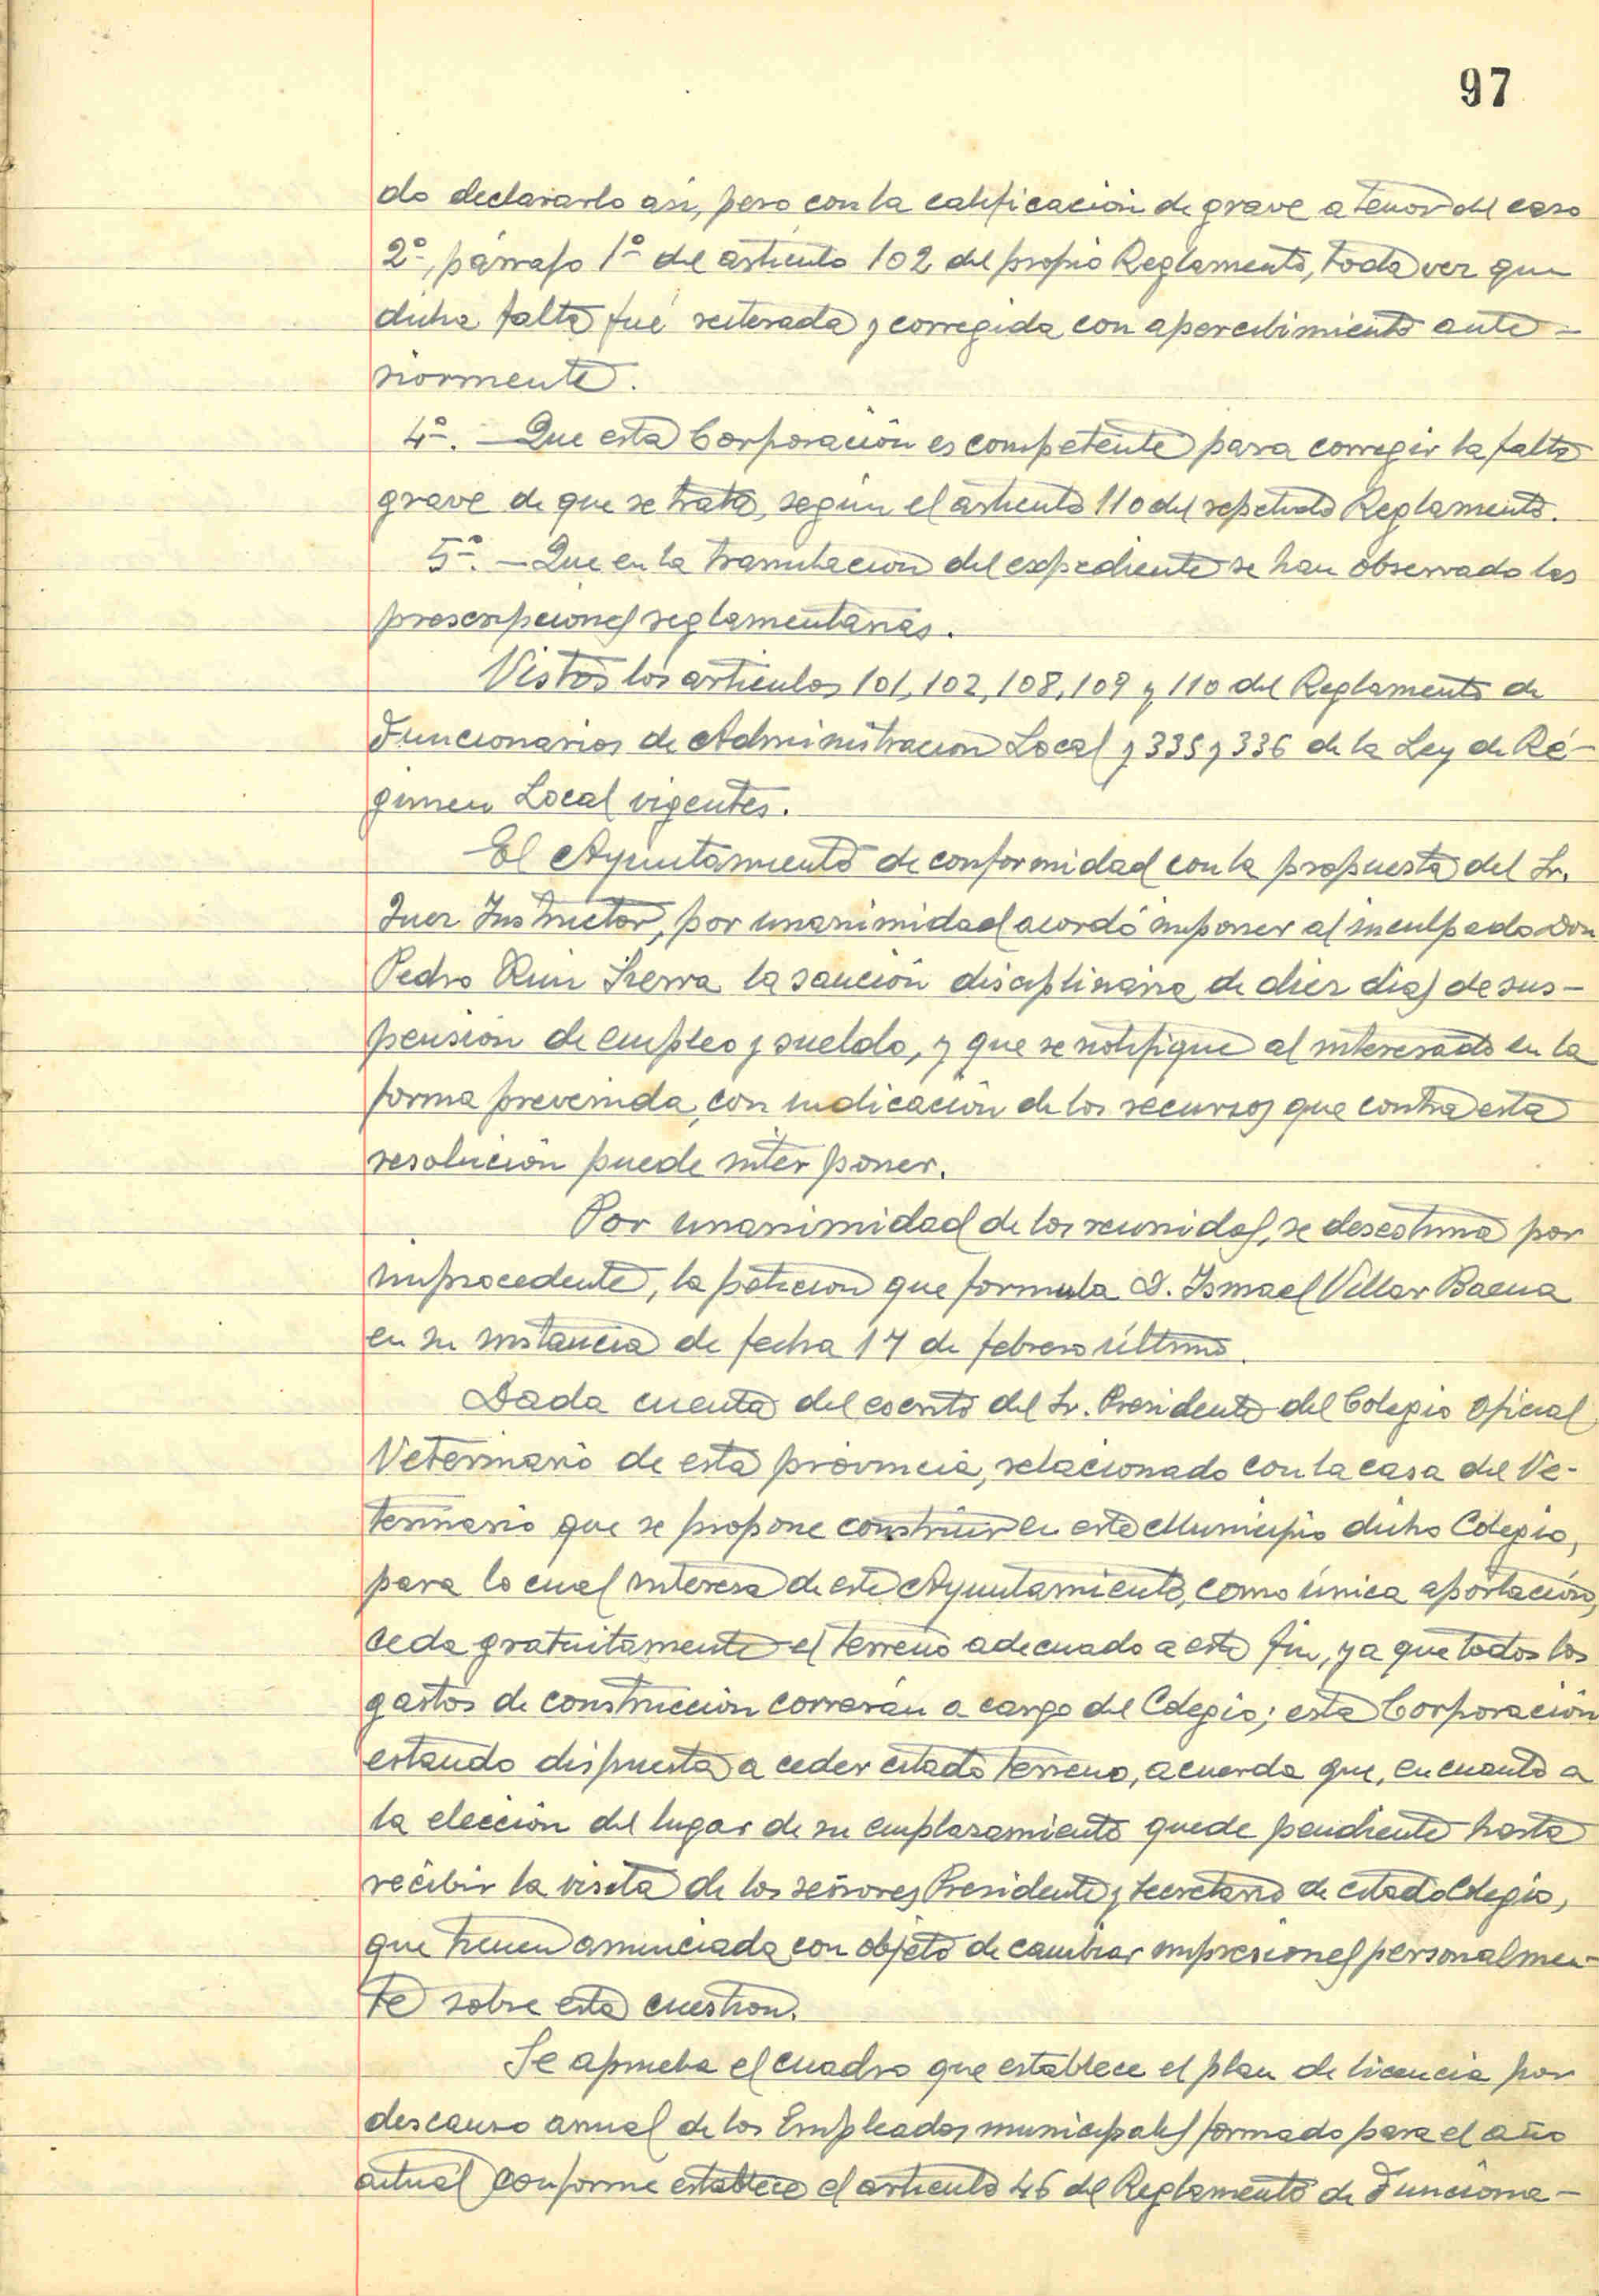 97
do declararlo así, pero con la calificación de grave a tenor del caso
2º, párrafo 1º del artículo 102 del propio Reglamento, toda vez que
dicha falta fué reiterada y corregida con apercibimiento ante=
riormente.
4º. — Que esta Corporación es competente para corregir la falta
grave de que se trata, según el artículo 110 del repetido Reglamento.
5º. — Que en la tramitación del expediente se han observado las
prescripciones reglamentarias.
Vistos los artículos 101, 102, 108, 109 y 110 del Reglamento de
Funcionarios de Administracion Local y 335 y 336 de la Ley de Ré-
gimen Local vigentes.
El Ayuntamiento de conformidad con la propuesta del Sr.
Juez Instructor, por unanimidad acordó imponer al inculpado Don
Pedro Ruiz Sierra la sanción disciplinaria de diez dias de sus-
pensión de empleo y sueldo, y que se notifique al interesado en la
forma prevenida, con indicación de los recursos que contra esta
resolución puede interponer.
Por unanimidad de los reunidos, se desestima por
improcedente, la petición que formula D. Ismael Villar Baena
en su instancia de fecha 17 de febrero último.
Dada cuenta del escrito del Sr. Presidente del Colegio Oficial
Veterinario de esta provincia, relacionado con la casa del Ve-
terinario que se propone construir en este Municipio dicho Colegio,
para lo cual interesa de este Ayuntamiento, como única aportación,
ceda gratuitamente el terreno adecuado a este fin, ya que todos los
gastos de construcción correrán a cargo del Colegio; esta Corporación
estando dispuesta a ceder citado terreno, acuerda que, en cuanto a
la elección del lugar de su emplazamiento quede pendiente hasta
recibir la visita de los señores Presidente y Secretario de citado Colegio,
que tienen anunciada con objeto de cambiar impresiones personalmen-
te sobre esta cuestion.
Se aprueba el cuadro que establece el plan de licencia por
descanso anual de los Empleados municipales formado para el año
actual conforme establece el artículo 46 del Reglamento de Funciona-